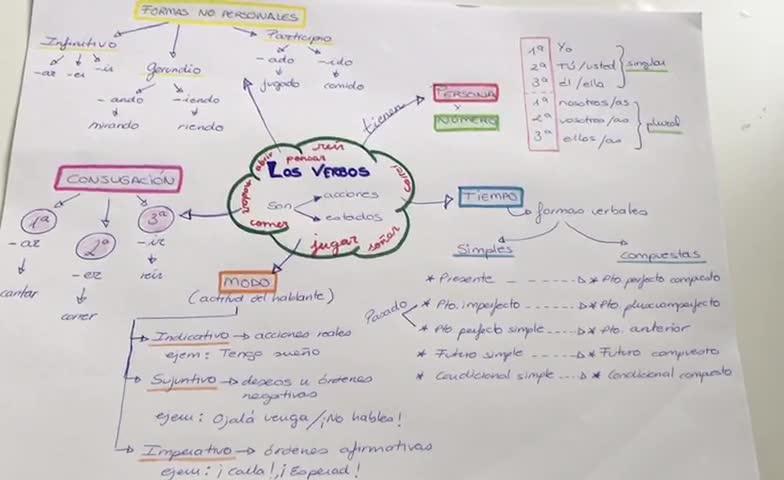 FORMAS NO PERSONALES
Infinitivo
-ar -er -ir
Gerundio
-ando -iendo
mirando riendo
Participio
-ado -ido
jugado comido
tienen
PERSONA
Y
NÚMERO
1ª Yo
2ª Tú/usted
3ª él/ella
singular
1ª nosotros/as
2ª vosotros/as
3ª ellos/as
plural
CONJUGACIÓN
1ª
-ar
cantar
2ª
-er
correr
3ª
-ir
reír
LOS VERBOS
son
acciones
estados
abrir
pensar
reír
nadar
comer
jugar
soñar
TIEMPO
formas verbales
Simples
Compuestas
* Presente * Pto. perfecto compuesto
Pasado
* Pto. imperfecto * Pto. pluscuamperfecto
* Pto perfecto simple * Pto. anterior
* Futuro simple * Futuro compuesto
* Condicional simple * Condicional compuesto
MODO
(actitud del hablante)
Indicativo acciones reales
ejem: Tengo sueño
Sujuntivo deseos u órdenes
negativas
ejem: Ojalá venga/¡No hables!
Imperativo órdenes afirmativas
ejem: ¡Calla!, ¡Esperad!